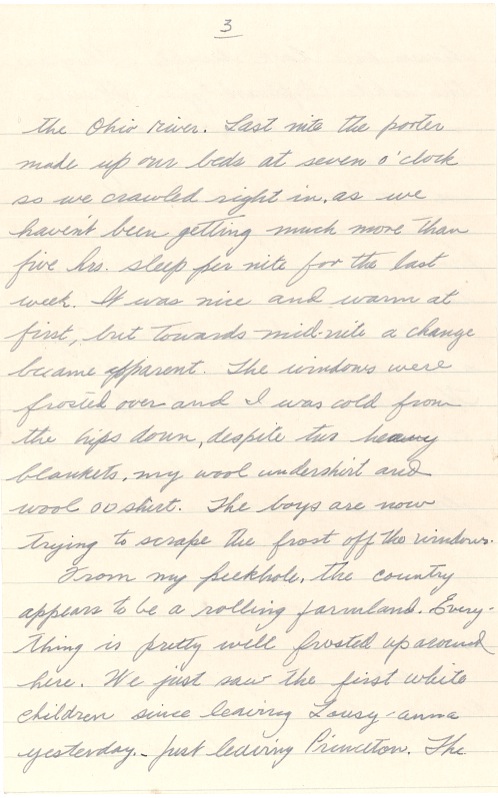 3
the Ohio river. Last nite the porter
made up our beds at seven o'clock
so we crawled right in, as we
haven't been getting much more than
five hrs. sleep per nite for the last
week. It was nice and warm at
first, but towards mid-nite a change
became apparent. The windows were
frosted over and I was cold from
the hips down, despite two heavy
blankets, my wool undershirt and
wool OD shirt. The boys are now
trying to scrape the frost off the windows.
From my peekhole, the country
appears to be a rolling farmland. Every-
thing is pretty well frosted up around
here. We just saw the first white
children since leaving Lousy-anna
yesterday. - Just leaving Princeton. The